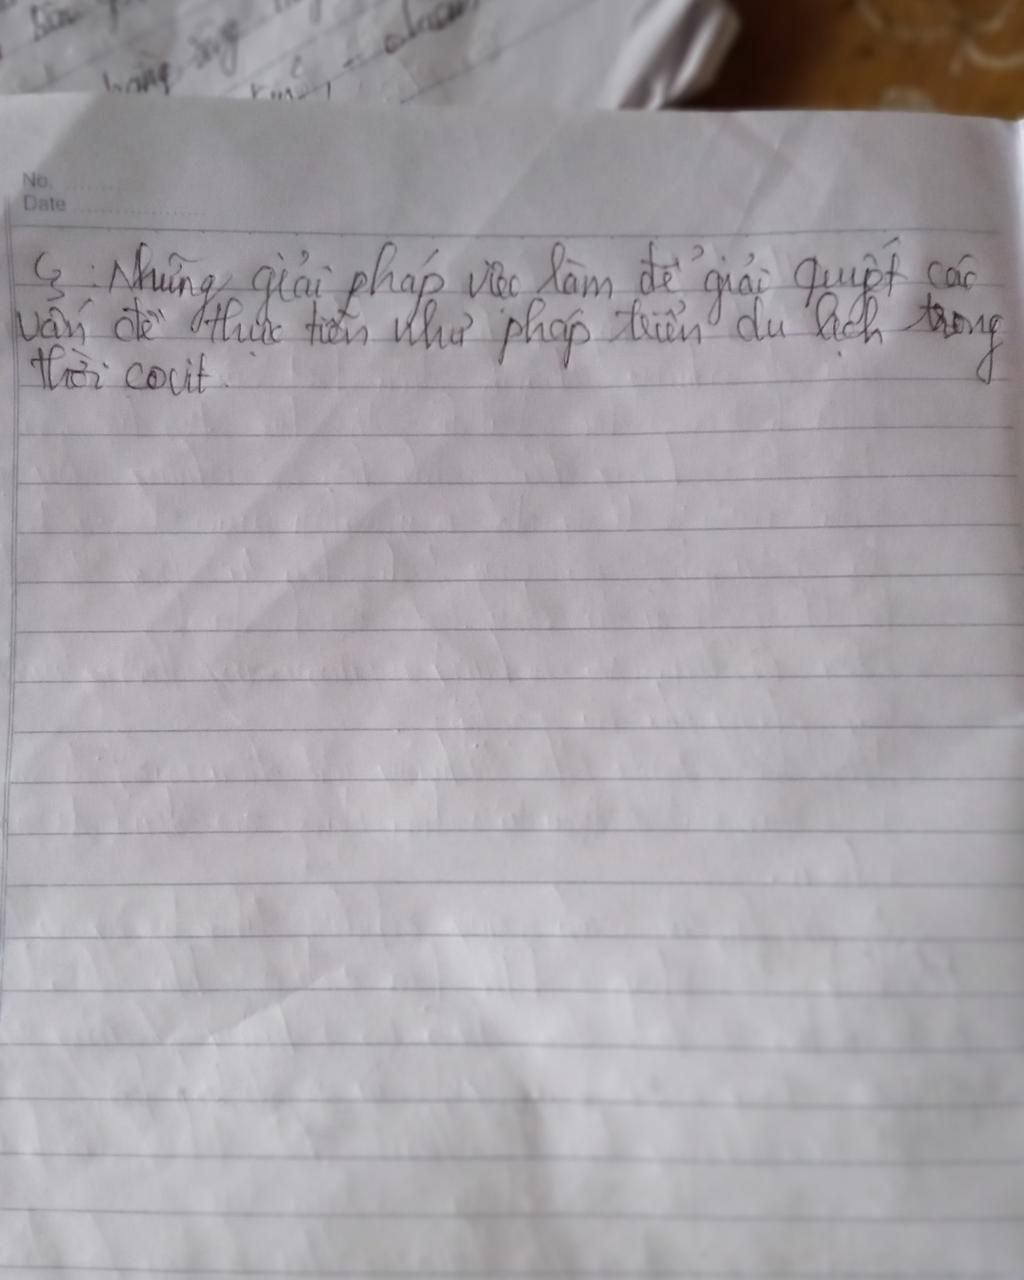 hàng sông
No.
Date
Ç: Những giải pháp việc làm để giải quyết các
vấn đề thực tiễn như pháp triển du lịch trong
thời covit.